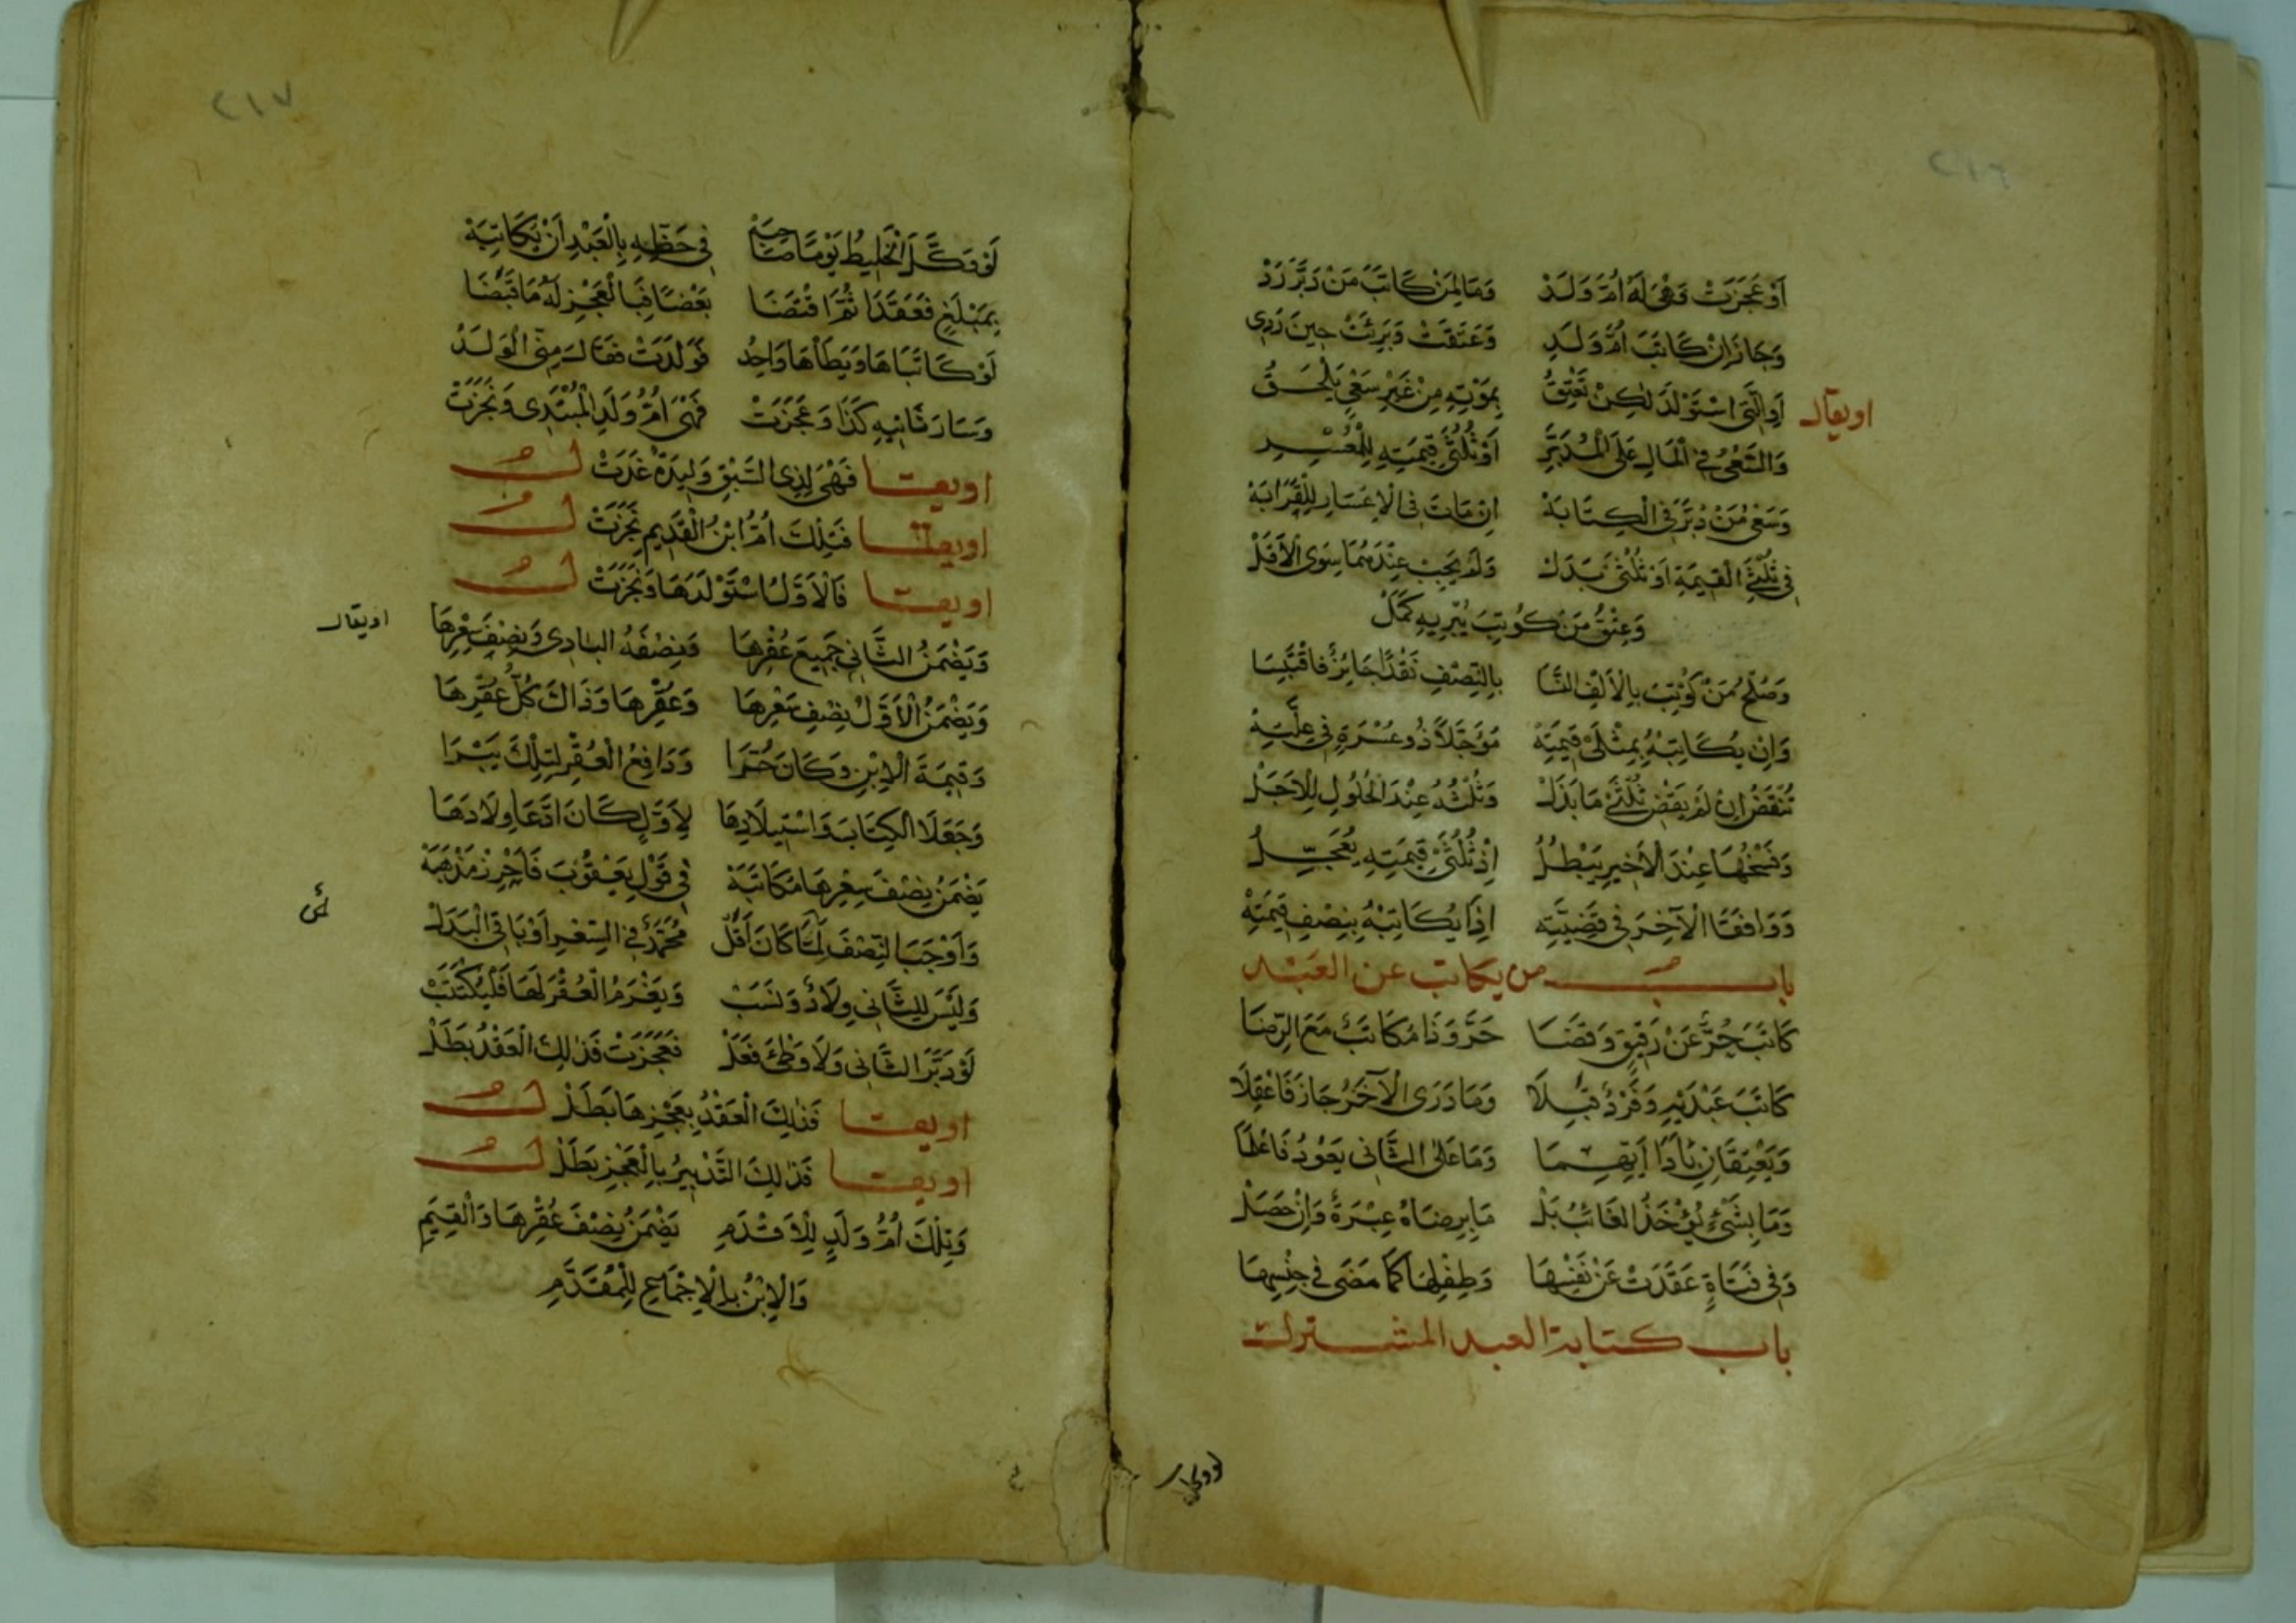 ٢١٦
أَوْ عَجَزَتْ وَهْيَ لَهُ أُمُّ وَلَدْ وَمَا لِمَنْ كَاتَبَ مَنْ دَبَّرَ رَدْ
وَجَازَ إِنْ كَاتَبَ أُمَّ وَلَدِ وَعَتَقَتْ وَبَرِئَتْ حِينَ رَدِي
او يقال
أَوِ الَّتِي اسْتَوْلَدَ لٰكِنْ تَعْتِقُ بِمَوْتِهِ مِنْ غَيْرِ سَعْيٍ يَلْحَقُ
وَالسَّعْيُ فِي الْمَالِ عَلَى الْمُدَبَّرِ أَوْ ثُلُثَيْ قِيمَتِهِ لِلْمُعْسِرِ
وَسَعْيُ مَنْ دُبِّرَ فِي الْكِتَابَهْ إِنْ مَاتَ فِي الْإِعْسَارِ لِلْقَرَابَهْ
فِي ثُلُثَيِ الْقِيمَةِ أَوْ ثُلْثَيْ بَدَلْ وَلَمْ يَجِبْ عِنْدَهُمَا سِوَى الْأَقَلْ
وَعِتْقُ مَنْ كُوتِبَ يُبْرِيهِ كَمَلْ
وَصُلْحُ مَنْ كُوتِبَ بِالْأَلْفِ النَّسَا بِالنِّصْفِ نَقْدًا جَائِزٌ فَاقْتَبِسَا
وَإِنْ يُكَاتِبْهُ بِمِثْلَيْ قِيمَتِهْ مُؤَجَّلًا ذُو عُسْرَةٍ فِي عِلَّتِهْ
تُنْقَضُ إِنْ لَمْ يَقْضِ ثُلْثَيْ مَا بَذَلْ وَثُلْثُهُ عِنْدَ الْحُلُولِ لِلْأَجَلْ
وَفَسْخُهَا عِنْدَ الْأَخِيرِ يَبْطُلُ إِذْ ثُلُثَيْ قِيمَتِهِ يُعَجِّلُ
وَوَافَقَا الْآخِرَ فِي قَضِيَّتِهِ إِذَا يُكَاتِبْهُ بِنِصْفِ قِيمَتِهْ
باب من يكاتب عن العبد
كَاتَبَ حُرٌّ عَنْ رَقِيقٍ وَقَضَا حَرَّ وَذَا مُكَاتَبٌ مَعَ الرِّضَا
كَاتَبَ عَبْدَيْهِ وَفَرْدٌ قَبِلَا وَمَا دَرَى الْآخَرُ جَازَ فَاعْقِلَا
وَيَعْتِقَانِ بِأَدَا أَيِّهِمَا وَمَا عَلَى الثَّانِي يَعُودُ فَاعْلَمَا
وَمَا بِشَيْءٍ يُؤْخَذُ الْغَائِبُ بَلْ مَا بِرِضَاهُ عِبْرَةٌ وَإِنْ حَصَلْ
وَفِي فَتَاةٍ عَقَدَتْ عَنْ نَفْسِهَا وَطِفْلِهَا كَمَا مَضَى فِي جِنْسِهَا
باب كتابة العبد المشترك
لو وكل
٢١٧
لَوْ وَكَّلَ الْخَلِيطُ يَوْمًا صَاحِبَهْ فِي حَظِّهِ بِالْعَبْدِ أَنْ يُكَاتِبَهْ
بِمَبْلَغٍ فَعَقَدَا ثُمَّ اقْتَضَا بَعْضًا فَبِالْعَجْزِ لَهُ مَا قَبَضَا
لَوْ كَاتَبَاهَا وَيَطَأْهَا وَاحِدُ فَوَلَدَتْ فَقَالَ مِنِّي الْوَلَدُ
وَسَارَ ثَانِيهِ كَذَا وَعَجَزَتْ فَهْيَ أُمُّ وَلَدِ الْمُبْتَدِي وَنَجَزَتْ
او يقال فَهْيَ لِذِي السَّبْقِ وَلِيدَةً غَدَتْ
او يقال فَتِلْكَ أُمُّ ابْنِ الْقَدِيمِ نَجَزَتْ
او يقال فَالْأَوَّلُ اسْتَوْلَدَهَا وَنَجَزَتْ
وَيَضْمَنُ الثَّانِي جَمِيعَ عُقْرِهَا وَنِصْفَهُ الْبَادِي وَنِصْفَ سِعْرِهَا
او يقال
وَيَضْمَنُ الْأَوَّلُ نِصْفَ سِعْرِهَا وَعُقْرِهَا وَذَاكَ كُلَّ عُقْرِهَا
وَقِيمَةَ الْإِبْنِ وَكَانَ حُرًّا وَدَافِعُ الْعُقْرِ لِتِلْكَ يَبْرَا
وَجَعَلَا الْكِتَابَ وَاسْتِيلَادَهَا لِأَوَّلٍ كَانَ ادَّعَا وِلَادَهَا
يَضْمَنُ نِصْفَ سِعْرِهَا مُكَاتَبَهْ فِي قَوْلِ يَعْقُوبَ فَأَحْرِزْ مَذْهَبَهْ
وَأَوْجَبَ النِّصْفَ لِمَا كَانَ أَقَلّ مُحَمَّدٌ فِي السِّعْرِ أَوْ بَاقِي الْبَدَلْ
وَلَيْسَ لِلثَّانِي وِلَادٌ وَنَسَبْ وَيَغْرَمُ الْعُقْرَ لَهَا فَلْيُكْتَتَبْ
لَوْ دَبَّرَ الثَّانِي وَلَا وَطْئَ فَعَلْ فَعَجَزَتْ فَذٰلِكَ الْعَقْدُ بَطَلْ
او يقال فَذٰلِكَ الْعَقْدُ بِعَجْزِهَا بَطَلْ
او يقال فَذٰلِكَ التَّدْبِيرُ بِالْعَجْزِ بَطَلْ
وَتِلْكَ أُمُّ وَلَدٍ لِلْأَقْدَمِ يَضْمَنُ نِصْفَ عُقْرِهَا وَالْقِيَمِ
وَالْإِبْنُ بِالْإِجْمَاعِ لِلْمُقَدَّمِ